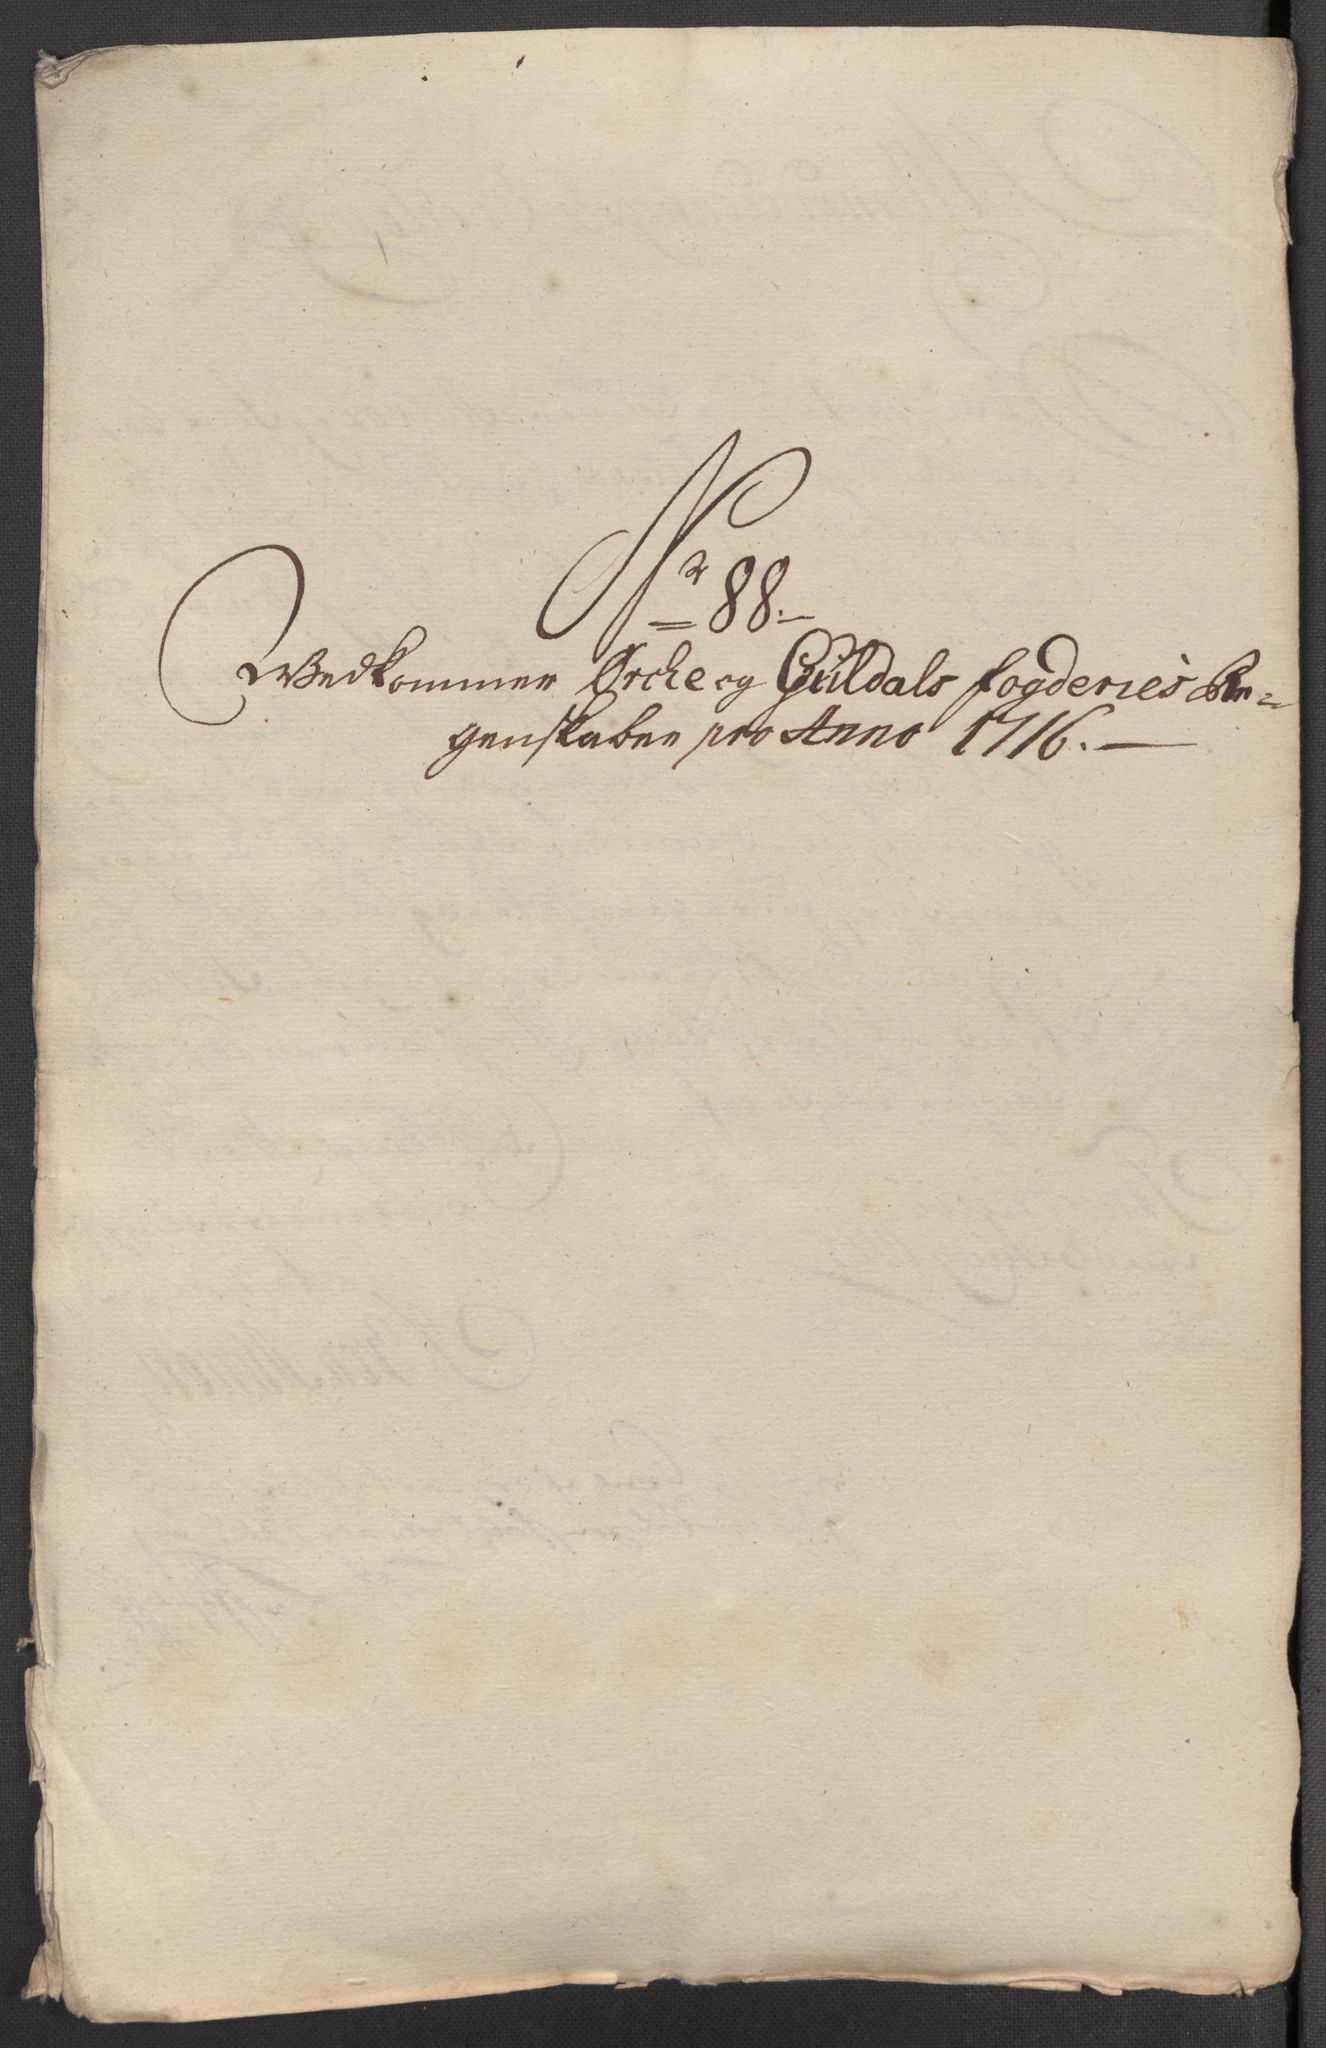 Nr 88.
Wedkommer Ørche og Guldals fogderies Re=
genskaber pro Anno 1716.